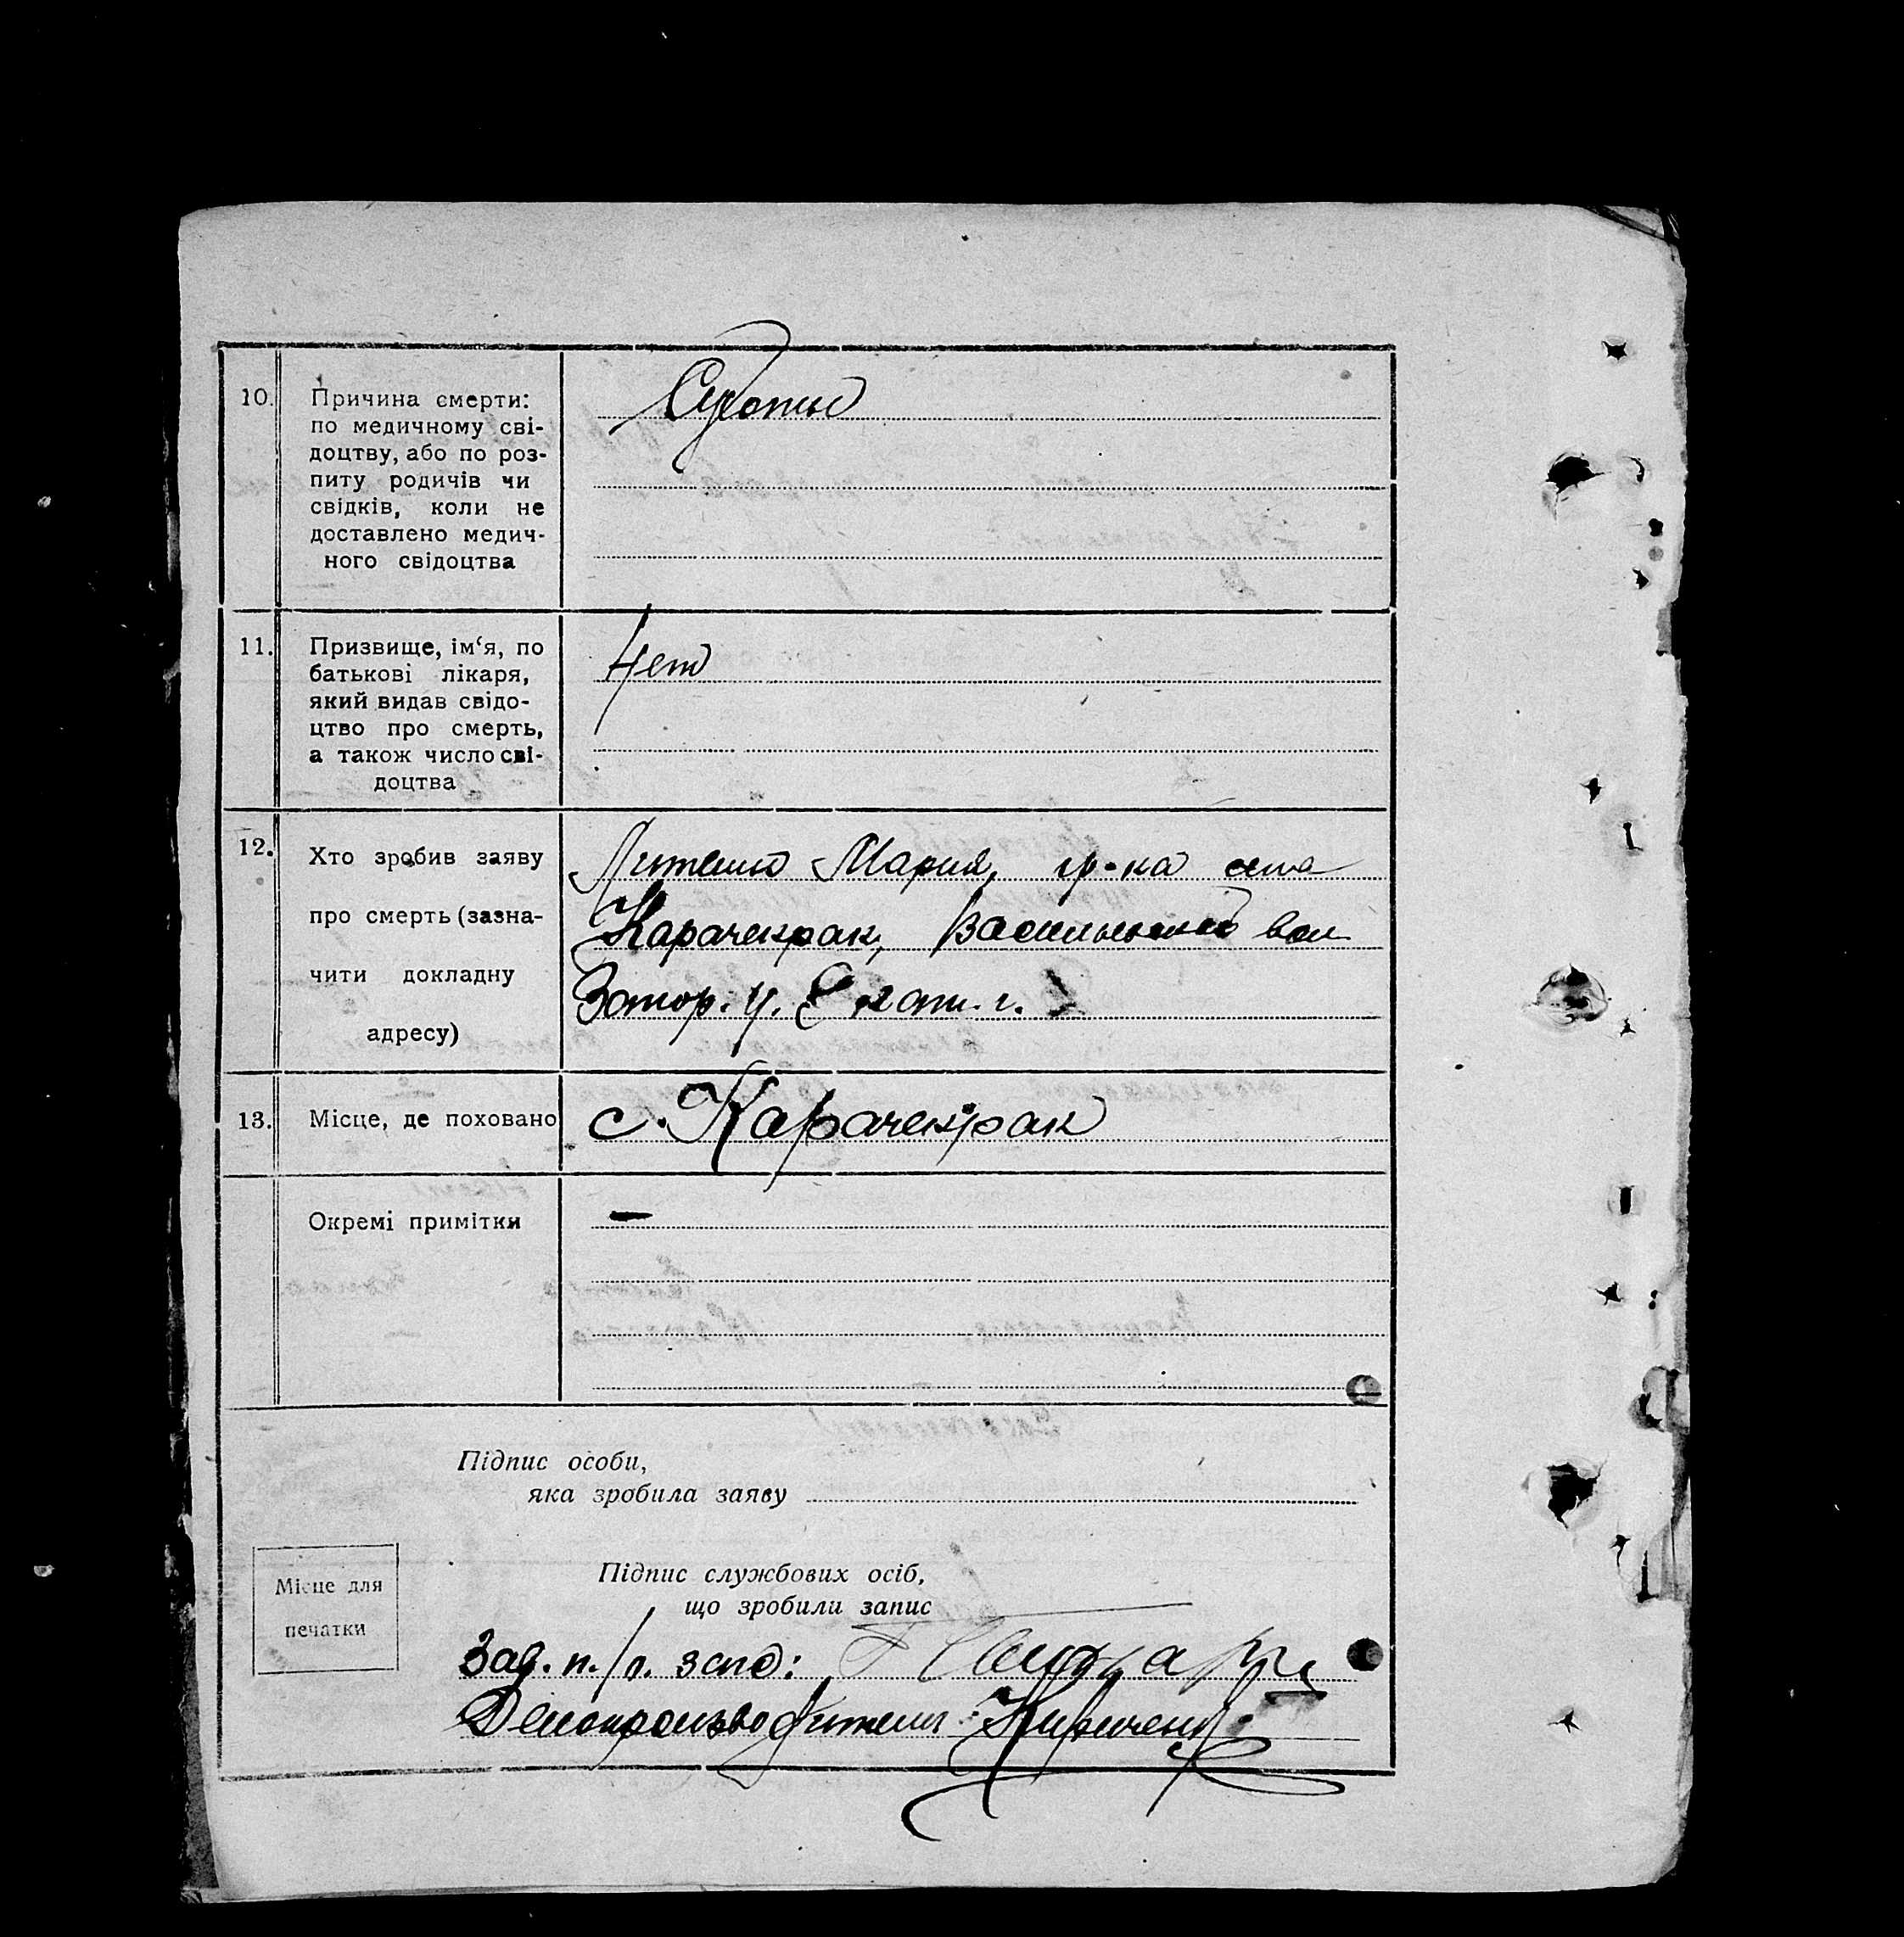 10. Причина смерти: Сухоты
по медичному сві-
доцтву, або по роз-
питу родичів чи
свідків, коли не
доставлено медич-
ного свідоцтва
11. Призвище, ім‘я, по Нет
батькові лікаря,
який видав свідо-
цтво про смерть,
а також число сві-
доцтва
12. Хто зробив заяву Мария, гр-ка села
про смерть (зазна- Карачекрак, Васильевской вол
чити докладну Запор. у. Екат. г.
адресу)
13. Місце, де поховано с. Карачекрак
Окремі примітки —
Підпис особи,
яка зробила заяву
Місце для
печатки
Підпис службових осіб,
що зробили запис
Зав. п/о. загс:
Делопроизводитель: Кириченко